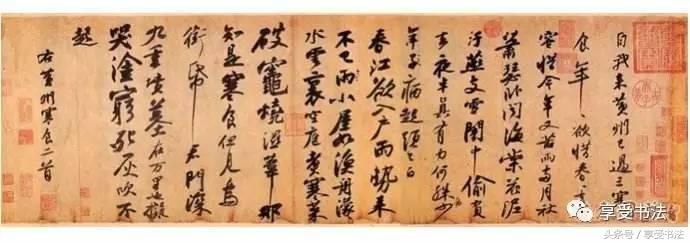 自我来黄州已過三寒
食年〻欲惜春〻
容惜今年又苦雨兩月秋
蕭瑟卧聞海棠花泥
汙燕支雪闇中偷負
去夜半真有力何殊少
年子病起頭已白
春江欲入戶雨勢来
不已雨小屋如漁舟濛〻
水雲裏空庖煮寒菜
破竈燒濕葦那
知是寒食但見烏
銜帋君門深
九重墳墓在万里也擬
哭塗窮死灰吹不
起
右黄州寒食二首
享受书法
头条号 / 享受书法